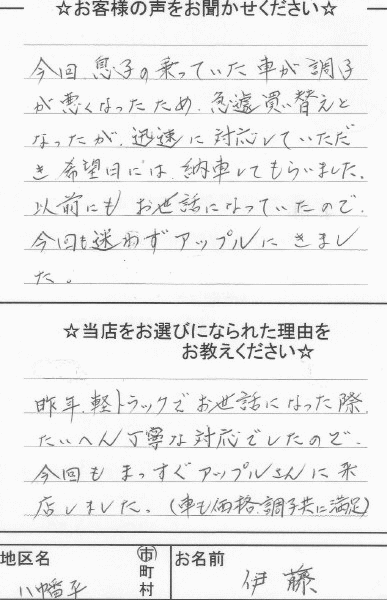 ☆お客様の声をお聞かせください☆
今回、息子の乗っていた車が調子
が悪くなったため、急遽買い替えと
なったが、迅速に対応していただ
き希望日には、納車してもらいました。
以前にも お世話になっていたので、
今回も迷わずアップルにきまし
た。
☆当店をお選びになられた理由を
お教えください☆
昨年、軽トラックでお世話になった際、
たいへん丁寧な対応でしたので、
今回もまっすぐアップルさんに来
店しました。(車も価格、調子共に満足)
地区名 市町村 お名前
八幡平 伊藤